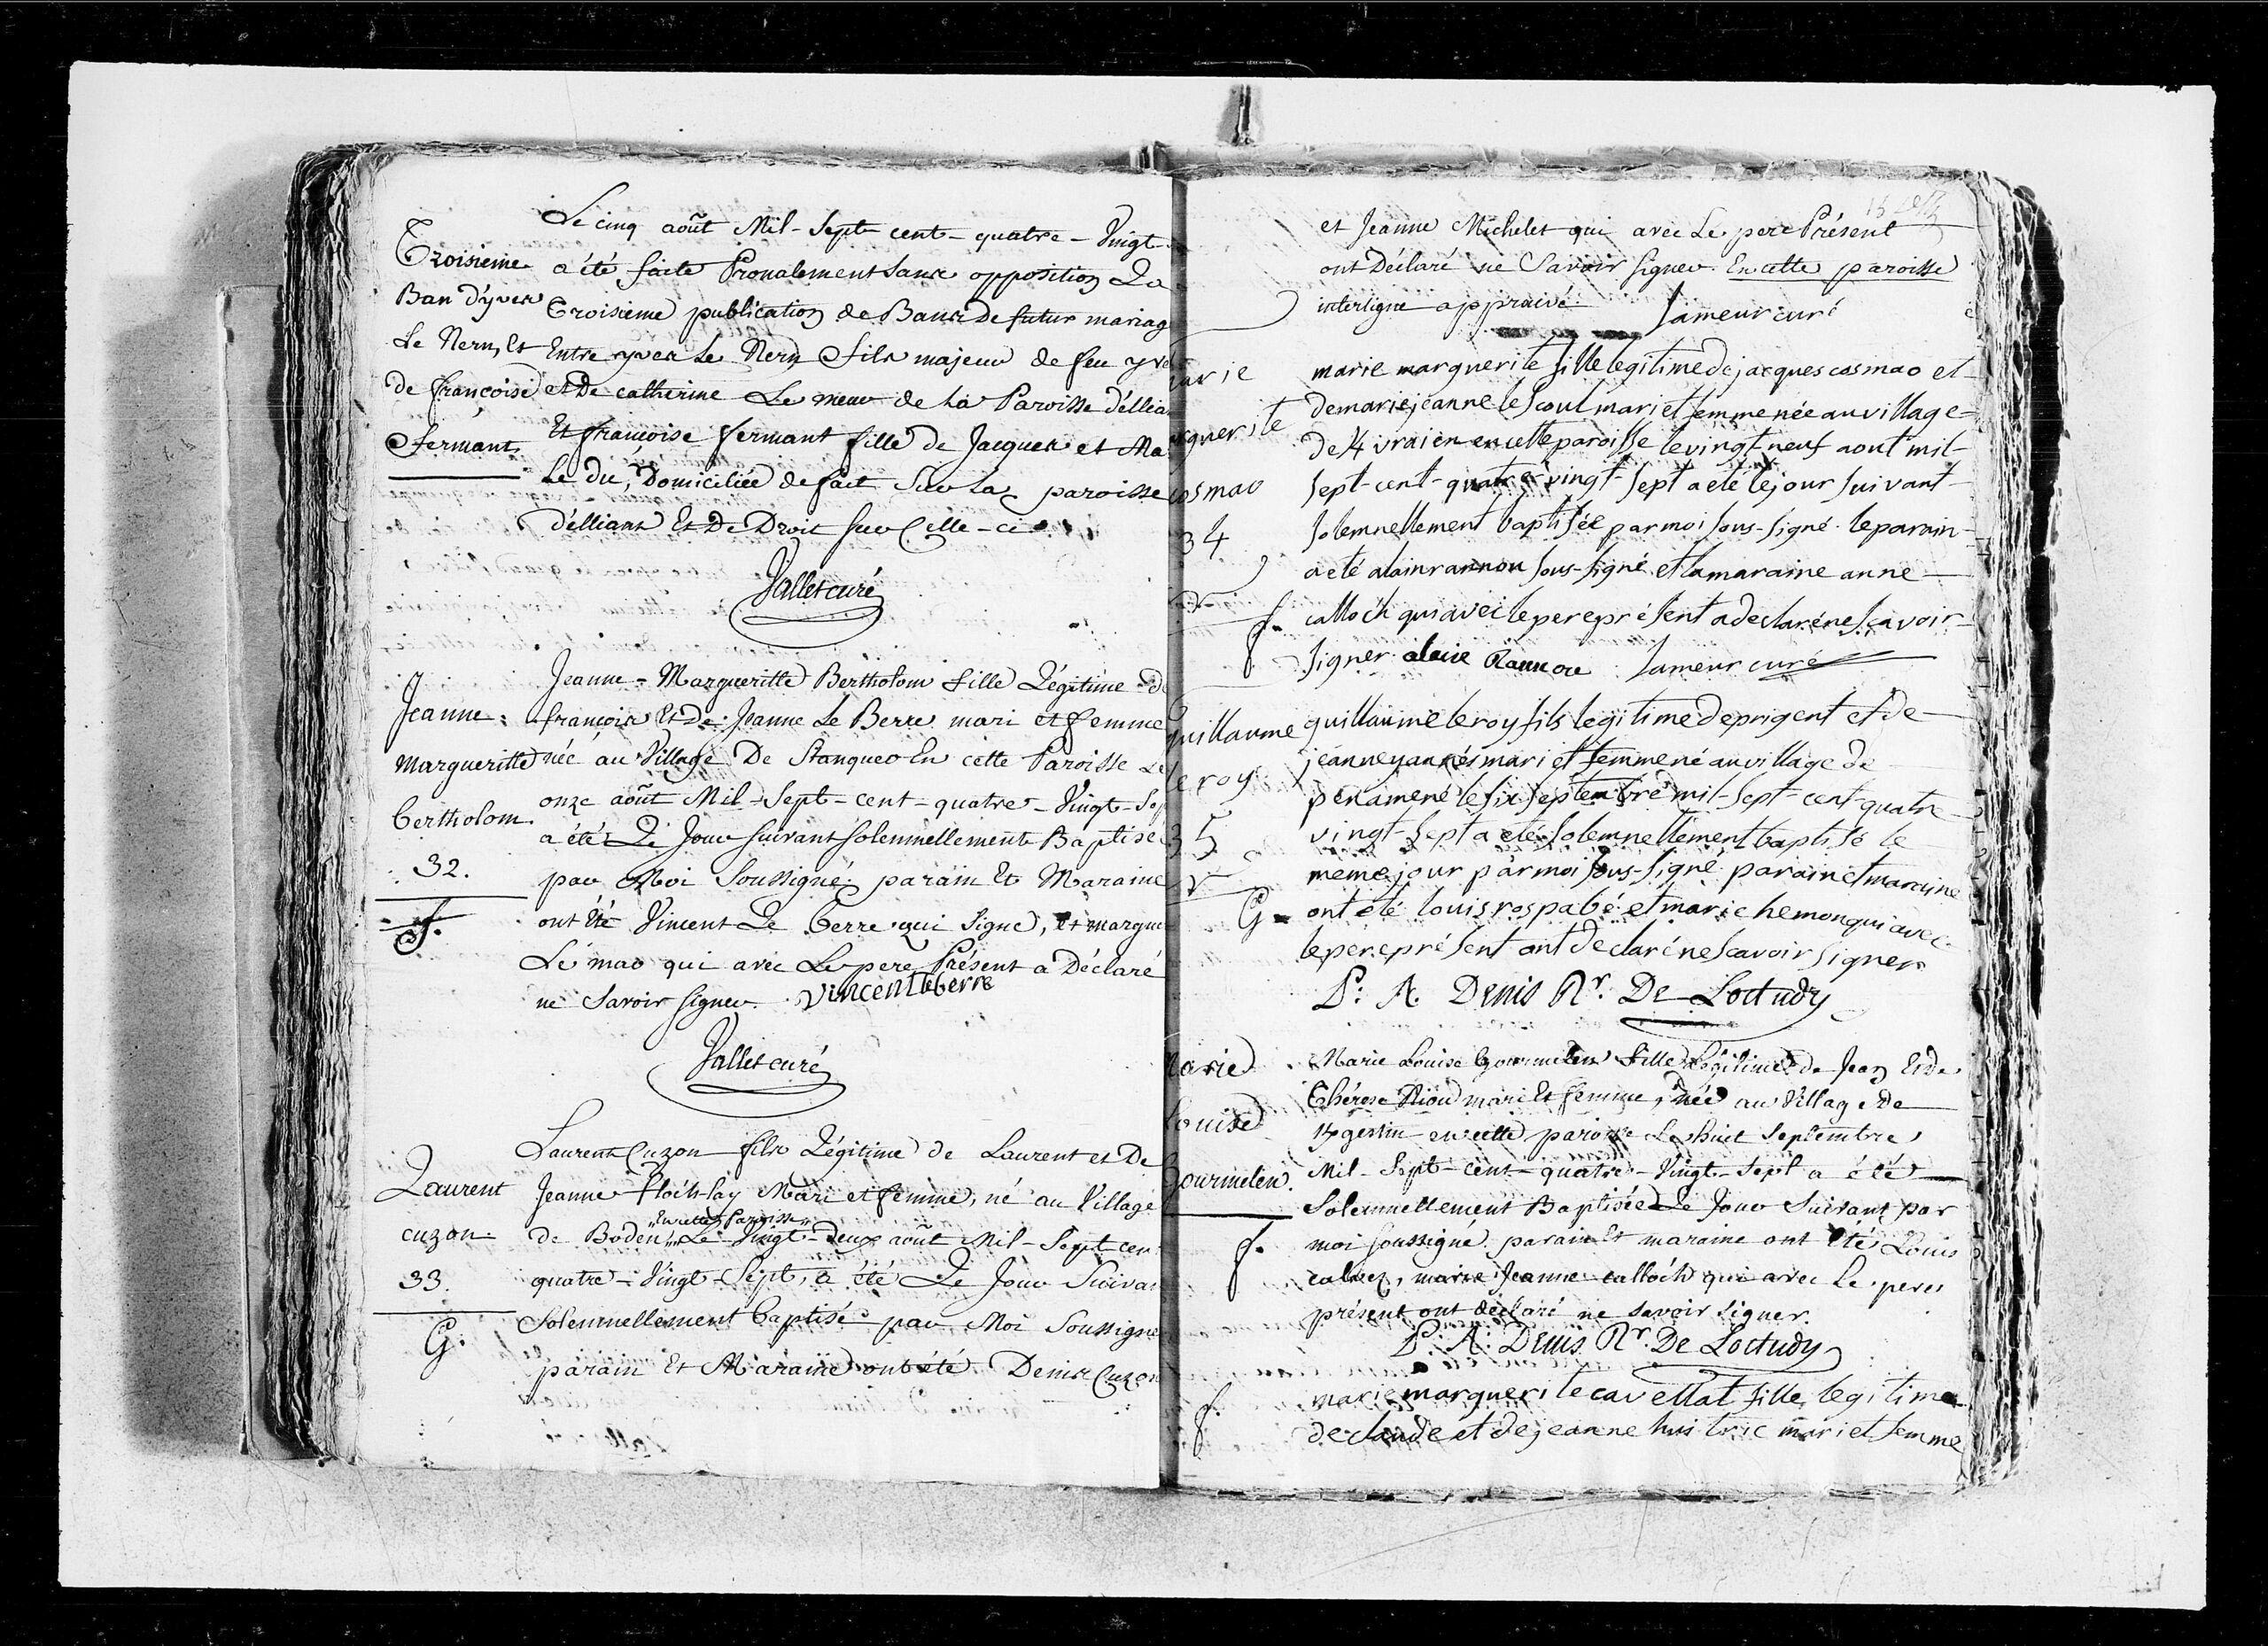 Le cinq août Mil-sept-cent-quatre-Vingt-
a été faite Pronalement sans opposition La
Troisieme publication de Bans De futur mariag
Entre yves Le Nern fils majeur de feu yves
et De catherine Le meur de La Paroisse d'ellia
Et françoise fermant fille de Jacques et Ma
Le du, Domiciliée de fait sur La paroisse
d'elliant Et De Droit sur Celle-ci.
Vallet curé
Troisieme
Ban d'yves
Le Nern, Et
de françoise
fermant
Jeanne-Margueritte Bertholom fille Légitime d
françois Et de Jeanne Le Berre mari et femme
née au Village De Stanqueo En cette Paroisse Le
onze août Mil-Sept-cent-quatre-Vingt-Sep
a été Le Jour suivant solemnellement Baptisé
par Moi Soussigné; parain Et Maraine
ont été Vincent Le berre qui signe, et margue
Le mao qui avec Le pere Présent a Déclaré
ne Savoir signer. Vincent le berre
Vallet curé
Jeanne
Margueritte
bertholom
32.
f.
Laurent Cuzon fils Légitime de Laurent et De
Jeanne floc'hlay Mari et femme, né au Village
En cette Paroisse
de Boden Le Vingt-Deux août Mil-Sept cen
quatre-Vingt-Sept, a été Le Jour Suivan
Solemnellement baptisé par Moi Soussigné
parain Et Maraine ont été Denis Cuzon
Laurent
cuzon
33.
G.
et Jeanne Michelet qui avec Le pere Présent
ont Déclaré ne Savoir signer. En cette paroisse
interligne appprouvé Lameur curé
marie marguerite fille legitime de jacques cosmao et
de marie jeanne le scoul mari et femme née au village
de 4 vraien en cette paroisse le vingt neuf aout mil-
sept-cent-quatre vingt-sept a eté le jour suivant
solemnellement baptisée par moi sous-signé. le parain
a eté alain rannou sous-signé et la maraine anne
calloch qui avec le pere présent a declaré ne scavoir
signer. alain Rannou Lameur curé
arie
rguerite
cosmao
34
f.
guillaume le roy fils legitime de prigent et de
jeanne yannés mari et femme né au village de
penamené le six septembre mil-sept-cent-quatre
vingt-sept a eté solemnellement baptisé le
meme jour par moi sous-signé. parain et maraine
ont été louis rospabé et marie hemon qui avec
le pere présent ont declaré ne scavoir signer
P. A. Denis Rr. De Loctudy
guillaume
le roy
35
G
Marie Louise Gourmelen fille Légitime de Jean Et de
Thérese Riou mari Et femme, née au Village De
en cette paroisse Le huit Septembre
Mil-Sept-cent-quatre-Vingt-sept a été
Solemnellement Baptisée Le Jour Suivant par
moi soussigné. parain Et maraine ont été Louis
calvez, marie Jeanne calloch qui avec Le pere
présent ont déclaré ne savoir signer.
P. A. Denis Rr. De Loctudy
arie
Louise
Gourmelen.
f.
marie marguerite cavellat fille legitime
de claude et de jeanne huitric mari et femme
f.